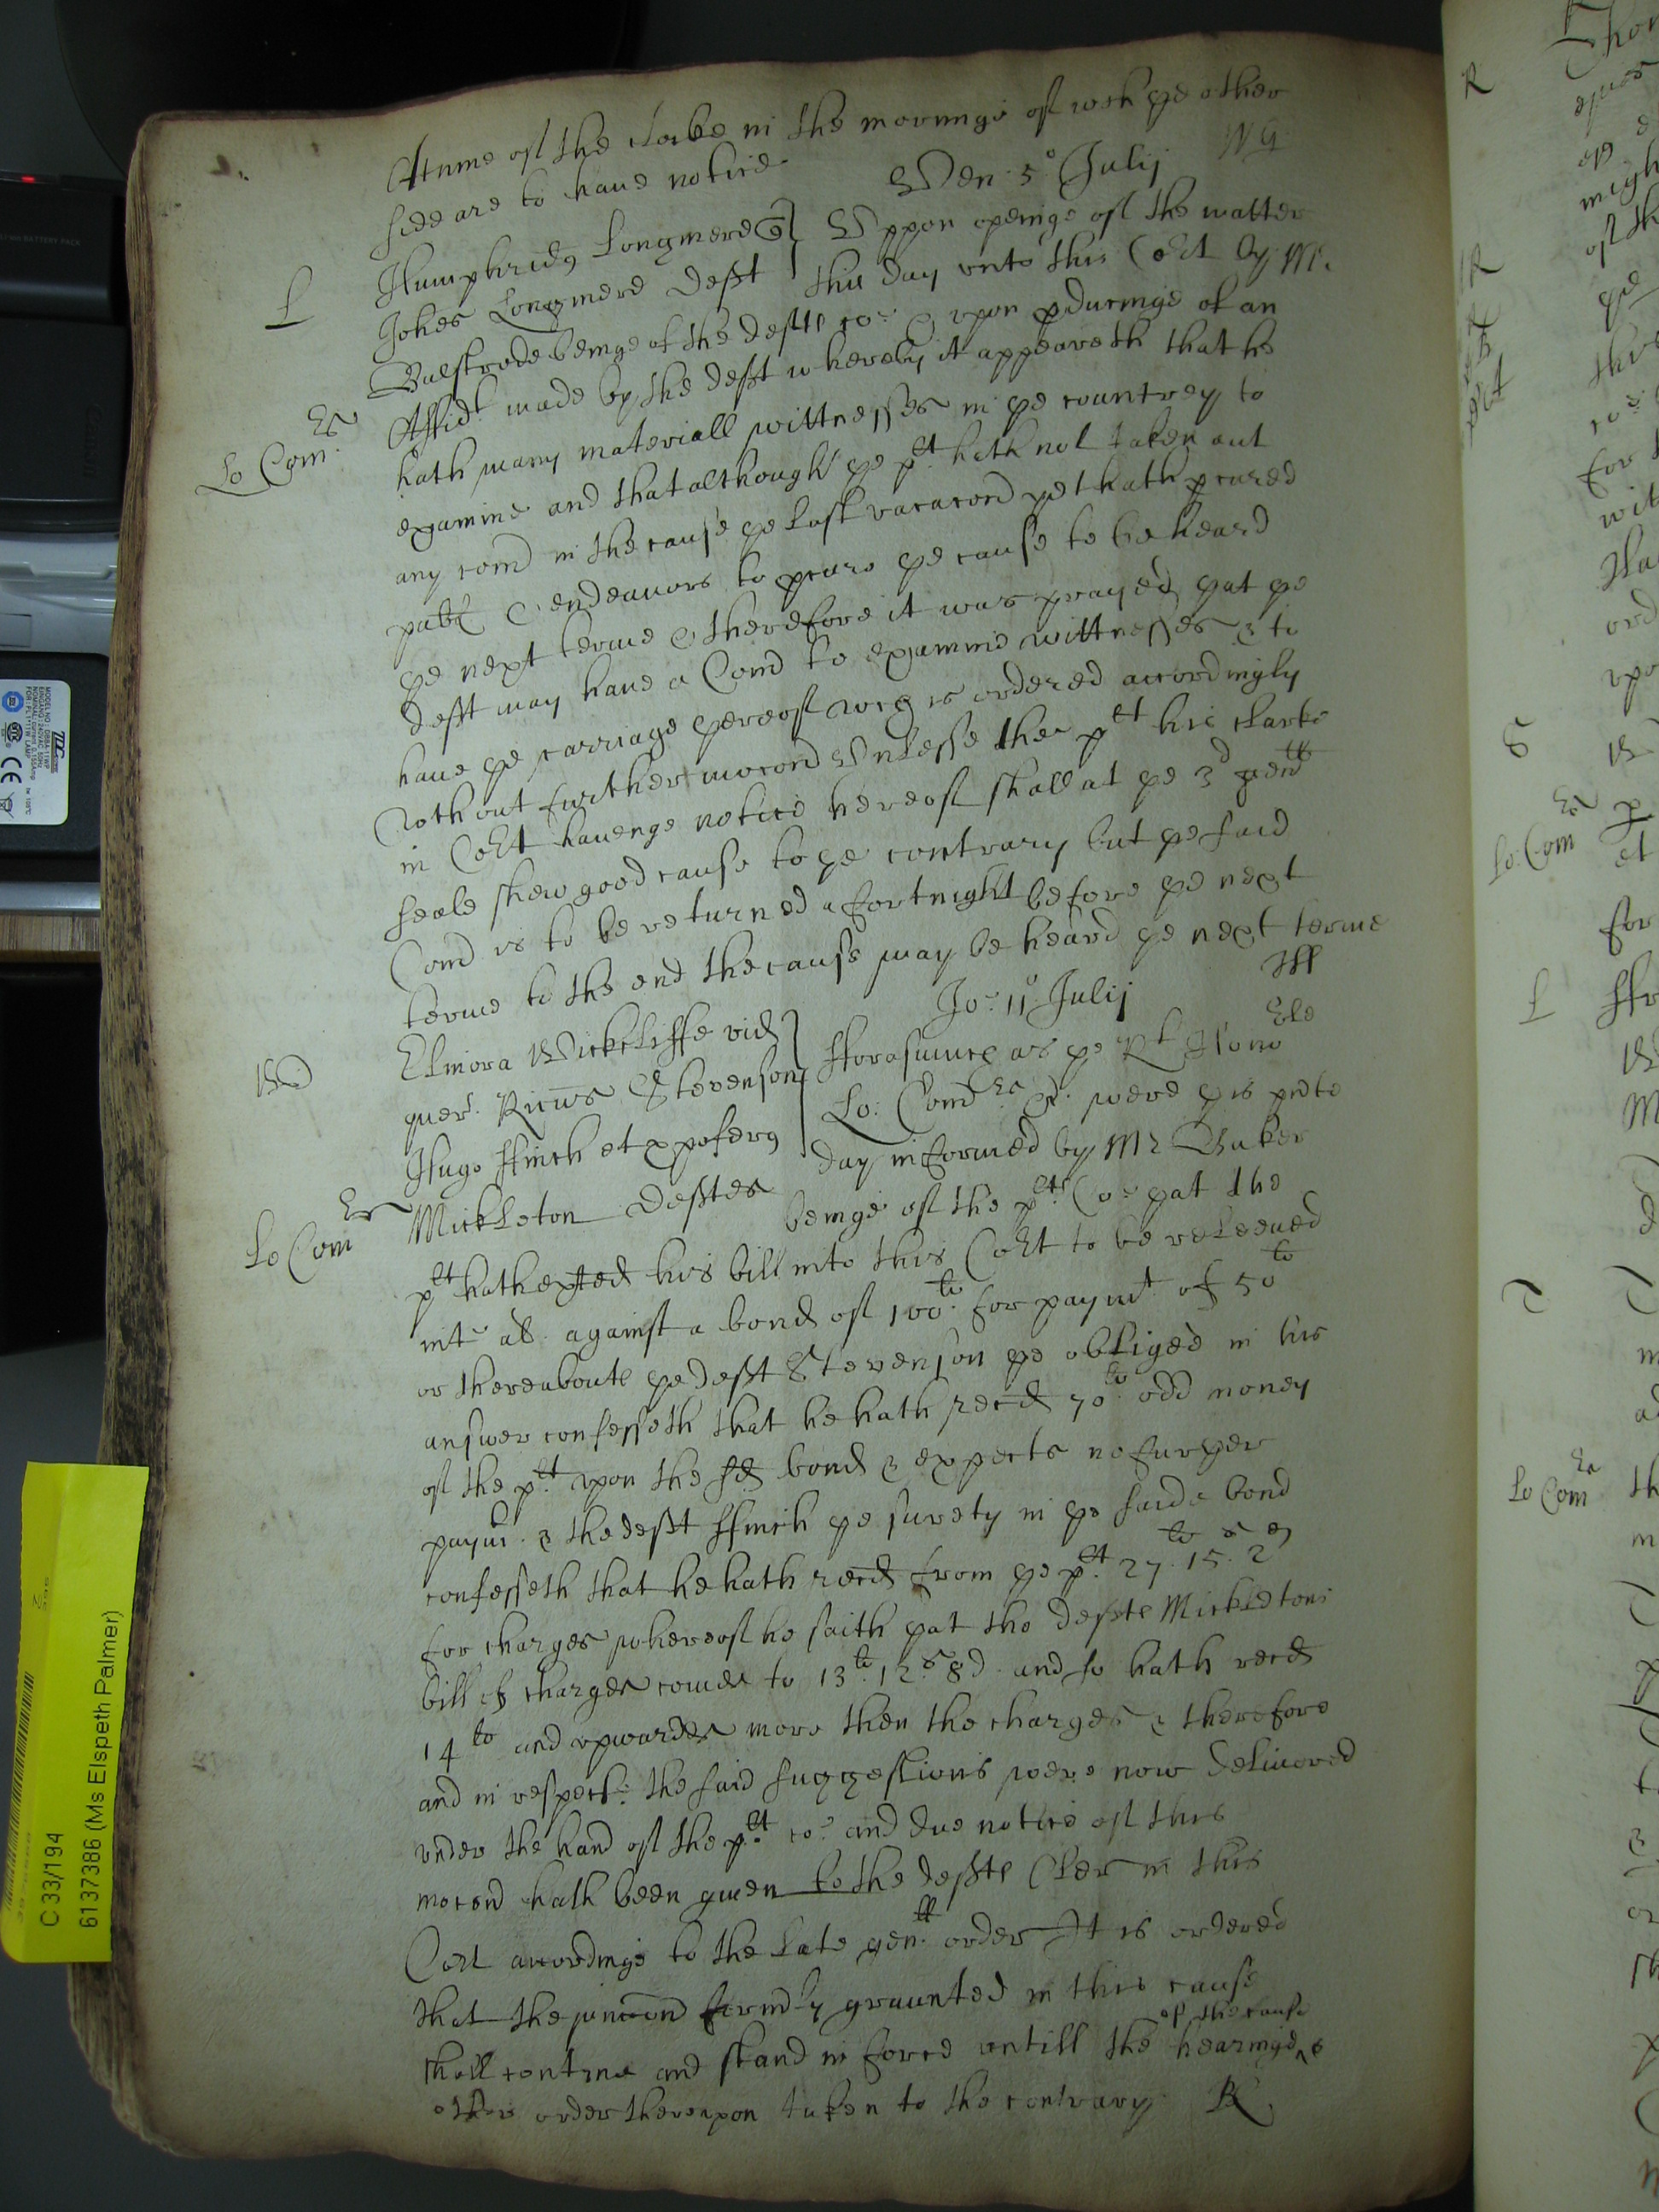 Attime of the clocke in the morninge of wch ye other
side are to have notice WG
Ven 5° Julij
L
Humphridus Longmere q} Uppon openige of the matter
Johes Longmere Deft } this day unto this Cort by Mr
Bulstrode beinge of the deftes co: & upon pducinge of an
Affidt made by the deft whereby it appeareth that he
Lo Comrs
hath many materiall wittnesses in ye countrey to
examine and that although ye plt hath not taken out
any comō in the cause ye last vacacon yet hath pcured
publ & endeavors to pcure ye cause to be heard
ye next terme & therefore it was prayed yat ye
deft may have a Comō to examine wittnesses & to
have ye carriage yereof wch is ordered accordingly
wthout further mocon Unlesse the plt his clarke
in Cort havenge notice hereof shall at ye 3d genll
seale shew good cause to ye contrary but ye said
Comō is to be returned a fortnight before ye next
terme to the end the cause may be heard ye next terme
Jo: 11° Julij
W
Elinora Wickliffe vid }
quer. Ricūs Stevenson } fforasmuch as ye Rt Honoble
Hugo ffinch et xpoferus } Lo: Comrs &c. were yis pnte
Mickleton Deftes day informed by Mr Baker
Lo Comrs
beinge of the plts Co: yat the
plt hath exted his bill into this Cort to be releeved
int al. against a bond of 100li for paymt of 50li
or thereaboute ye deft Stevenson ye obligee in his
answer confesseth that he hath recd 70li odd money
of the plt upon the sd bond & expects no furyer
paymt. & the deft ffinch ye surety in ye saide bond
confesseth that he hath recd from ye plt 27li 15s 2d
for charges whereof he saith yat the defte Mickletons
bill of charges comes to 13li 12s 8d and so hath recd
14li and upwardes more then the charges & therefore
and in respect the said suggestions were now delivered
under the hand of the plt co: and due notice of this
mocon hath been given to the defte Cler in this
Cort accordinge to the late genll order It is ordered
that the iuncon formly graunted in this cause
shall contine and stand in force untill the hearinge ^of the cause or
other order thereupon taken to the contrary. R
C 33/194
6137386 (Ms Elspeth Palmer)